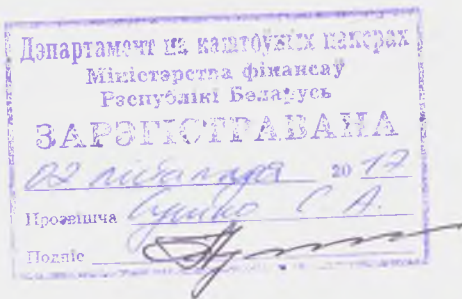 Дэпартамент па каштоўных паперах
Міністэрства фінансаў
Рэспублікі Беларусь
ЗАРЭГІСТРАВАНА
02 лістапада 2017
Прозвішча С. А.
Подпіс